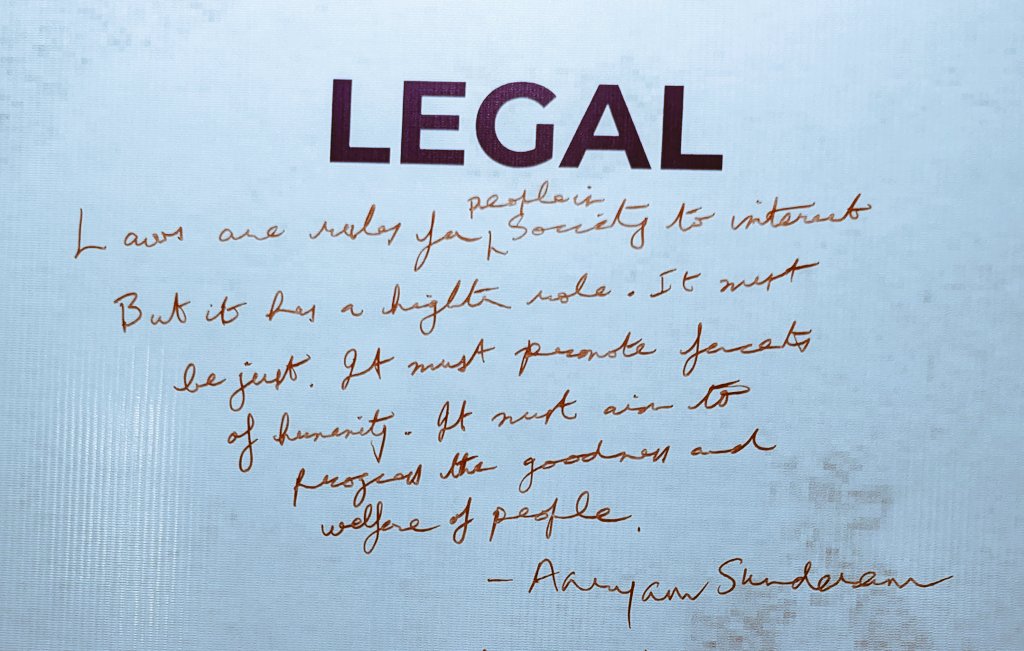 LEGAL
Laws are rules for people in Society to interact
But it has a higher role. It must
be just. It must promote facets
of humanity. It must aim to
progress the goodness and
welfare of people.
- Aaryam Sunderam